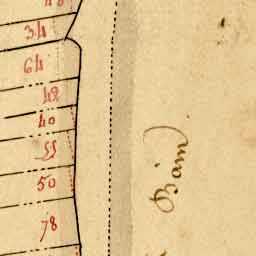 34
64
49
40
55
50
78
Bain)